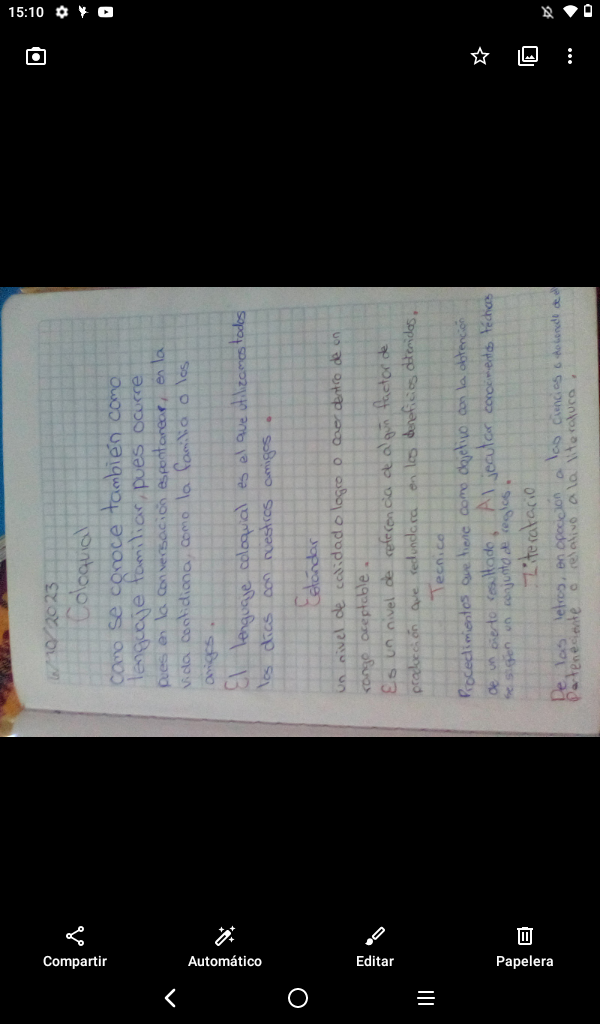 15:10
6/10/2023
Coloquial
como se conoce también como
lenguaje familiar, pues ocurre
pues en la conversación espontanear, en la
vida cantidiana, como la familia o los
amigos.
El lenguaje coloquial es el que utilizamos todos
los dias con nuestros amigos.
Estándar
un nivel de calidad o logro o caer dentro de un
rango aceptable.
Es un nivel de referencia de algún factor de
producción que redundara en los beneficios obtenidos.
Tecnico
Procedimientos que tiene como objetivo con la obtención
de un cierto resultado. Al jecutar conocimientos técnicas
según un conjunto de reglas.
Literatacio
De las letras, en oposición a las ciencias o
Perteneciente o relativo a la literatura.
Compartir
Automático
Editar
Papelera